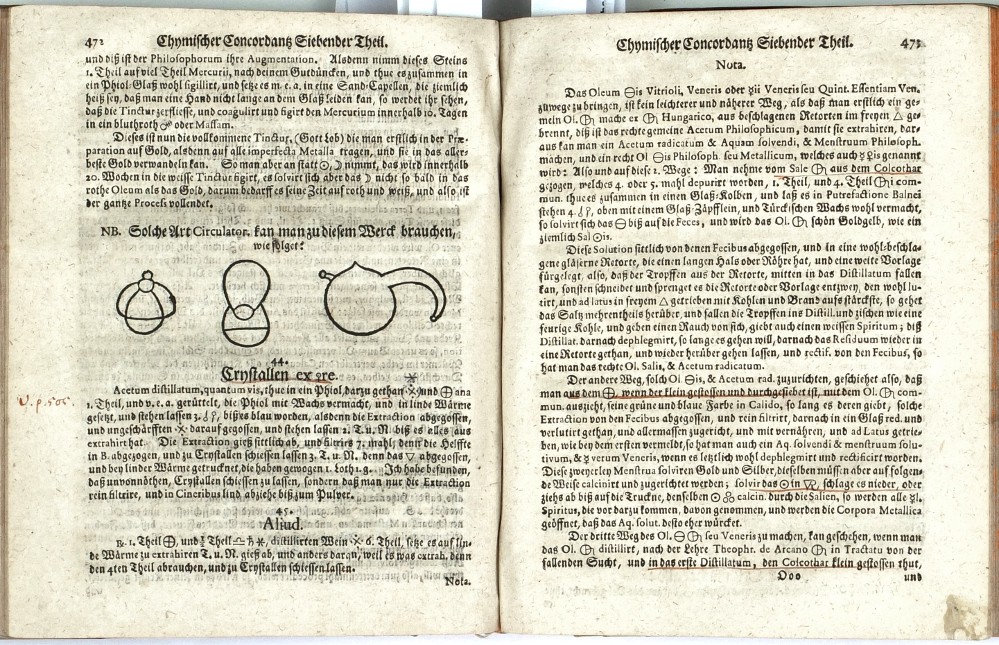 472 Chymischer Concordantz Siebender Theil.
und diß ist der Philosophorum ihre Augmentation. Alsdenn nimm dieses Steins
1. Theil auf viel Theil Mercurii, nach deinem Gutdüncken, und thue es zusammen in
ein Phiol-Glaß wohl sigillirt, und setze es m. e. a. in eine Sand-Capellen, die ziemlich
heiß sey, daß man eine Hand nicht lange an dem Glaß leiden kan, so werdet ihr sehen,
daß die Tinctur zerfliesse, und coagulirt und figirt den Mercurium innerhalb 10. Tagen
in ein blutroth oder Massam.
Dieses ist nun die vollkommene Tinctur, (Gott Lob) die man erstlich in der Præ-
paration auf Gold, alsdenn auf alle imperfecta Metalla tragen, und sie in das aller-
beste Gold verwandeln kan. So man aber an statt ☉, ☽ nimmt, das wird innerhalb
20. Wochen in die weisse Tinctur figirt, es solvirt sich aber das ☽ nicht so bald in das
rothe Oleum als das Gold, darum bedarff es seine Zeit auf roth und weiß, und also ist
der gantze Process vollendet.
NB. Solche Art Circulator. kan man zu diesem Werck brauchen,
wie folget:
44.
Crystallen ex ære.
Acetum distillatum, quantum vis, thue in ein Phiol, darzu gethan und ana
1. Theil, und v. e. a. gerüttelt, die Phiol mit Wachs vermacht, und in linde Wärme
gesetzt, und stehen lassen 3. biß es blau worden, alsdenn die Extraction abgegossen,
und ungeschärfften darauf gegossen, und stehen lassen 2. T. u. N. biß es alles
extrahirt hat. Die Extraction gieß sittlich ab, und filtrirs 7. mahl, denn die Helffte
in B. abgezogen, und zu Crystallen schiessen lassen 3. T. u. N. denn das ▽ abgegossen,
und bey linder Wärme getrucknet, die haben gewogen 1. loth 1. q. Ich habe befunden,
daß unvonnöthen, Crystallen schiessen zu lassen, sondern daß man nur die Extraction
rein filtrire, und in Cineribus lind abziehe biß zum Pulver.
45.
Aliud.
℞. 1. Theil, und Theil distillirten Wein 6. Theil, setze es auf lin-
de Wärme zu extrahiren T. u. N. gieß ab, und anders daran, weil es was extrah. denn
den 4ten Theil abrauchen, und zu Crystallen schiessen lassen.
Nota.
V. p. 505.
Chymischer Concordantz Siebender Theil. 473
Nota.
Das Oleum ⊖is Vitrioli, Veneris oder ii Veneris seu Quint. Essentiam Ven.
zuwege zu bringen, ist kein leichterer und näherer Weg, als daß man erstlich ein ge-
mein Ol. mache ex Hungarico, aus beschlagenen Retorten im freyen △ ge-
brennt, diß ist das rechte gemeine Acetum Philosophicum, damit sie extrahiren, dar-
aus kan man ein Acetum radicatum & Aquam solvendi, & Menstruum Philosoph.
machen, und ein recht Ol ⊖is Philosoph. seu Metallicum, welches auch is genannt
wird: Also und auf diese 2. Wege: Man nehme vom Sale aus dem Colcothar
gezogen, welches 4. oder 5. mahl depurirt worden, 1. Theil, und 4. Theil i com-
mun. thue es zusammen in einen Glaß-Kolben, und laß es in Putrefactione Balnei
stehen 4. oben mit einem Glaß-Zäpfflein, und Türckischen Wachs wohl vermacht,
so solvirt sich das ⊖ biß auf die Feces, und wird das Ol. schön Goldgelb, wie ein
ziemlich Sal ☉is.
Diese Solution sittlich von denen Fecibus abgegossen, und in eine wohl-beschla-
gene gläserne Retorte, die einen langen Hals oder Röhre hat, und eine weite Vorlage
fürgelegt, also, daß der Tropffen aus der Retorte, mitten in das Distillatum fallen
kan, sonsten schneidet und sprenget es die Retorte oder Vorlag entzwey, den wohl lu-
tirt, und ad latus in freyem △ getrieben mit Kohlen und Brand aufs stärckste, so gehet
das Saltz mehrentheils herüber, und fallen die Tropffen ins Distill. und zischen wie eine
feurige Kohle, und geben einen Rauch von sich, giebt auch einen weissen Spiritum; diß
Distillat. darnach dephlegmirt, so lange es gehen will, darnach das Residuum wieder in
eine Retorte gethan, und wieder herüber gehen lassen, und rectif. von den Fecibus, so
hat man das rechte Ol. Salis, & Acetum radicatum.
Der andere Weg, solch Ol ⊖is, & Acetum rad. zuzurichten, geschiehet also, daß
man aus dem, wenn der klein gestossen und durchgesiebet ist, mit dem Ol. com-
mun. ausziehet, seine grüne und blaue Farbe in Calido, so lang es deren giebt, solche
Extraction von den Fecibus abgegossen, und rein filtrirt, darnach in ein Glaß red. und
verlutirt gethan, und allermassen zugericht, und mit vernähren, und ad Latus getrie-
ben, wie bey dem ersten vermeldt, so hat man auch ein Aq. solvendi & menstruum solu-
tivum, & verum Veneris, wenn es letzlich wohl dephlegmirt und rectificirt worden.
Diese zweyerley Menstrua solviren Gold und Silber, dieselben müssen aber auf folgen-
de Weise calcinirt und zugerichtet werden; solvir das ☉ in, schlage es nieder, oder
ziehs ab biß auf die Truckne, denselben ☉ calcin. durch die Salien, so werden alle
Spiritus, die vor darzu kommen, davon genommen, und werden die Corpora Metallica
geöffnet, daß das Aq. solut. desto eher würcket.
Der dritte Weg des Ol. ⊖ seu Veneris zu machen, kan geschehen, wenn man
das Ol. distillirt, nach der Lehre Theophr. de Arcano in Tractatu von der
fallenden Sucht, und in das erste Distillatum, den Colcothar klein gestossen thut,
Ooo und